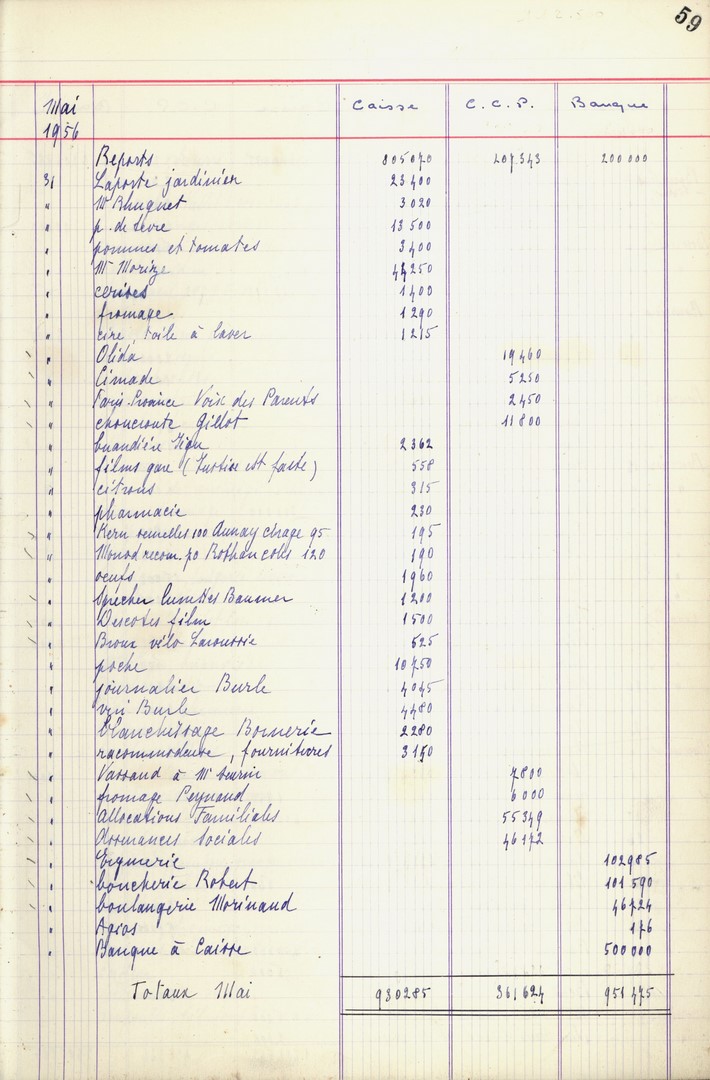 59
Mai 1956 Caisse C.C.P. Banque
Reports 805070 207343 200000
31 Laporte jardinier 23400
" Mr Bhuguet 3020
" p. de terre 13500
" pommes et tomates 3400
" Mr Morize 44250
" cerises 1400
" fromage 1290
" cire, toile à laver 1215
" Olida 19460
" Cimade 5250
" Paris-Province Voix des Parents 2450
" choucroute Gillot 11800
" buandière 2362
" films gare (Justice est faite) 558
" citrons 315
" pharmacie 230
" Kern semelles 100 Aunay cirage 95 195
" Monod recom. 70 Rothan colis 120 190
" oeufs 1960
" Sprecher lunettes Baumer 1200
" Descotes film 1500
" Broux vélo Laroussie 525
" poche 10750
" journalier Burle 4045
" vin Burle 4480
" blanchissage Bornerie 2280
" racommodeuse, fournitures 3150
" Vassaud à Mr 7800
" fromage Peynaud 6000
" Allocations Familiales 55349
" Assurances Sociales 46172
" Eymerie 102985
" boucherie Robert 101590
" boulangerie Morinaud 46724
" Agios 176
" Banque à Caisse 500000
Totaux Mai 930285 361624 951475